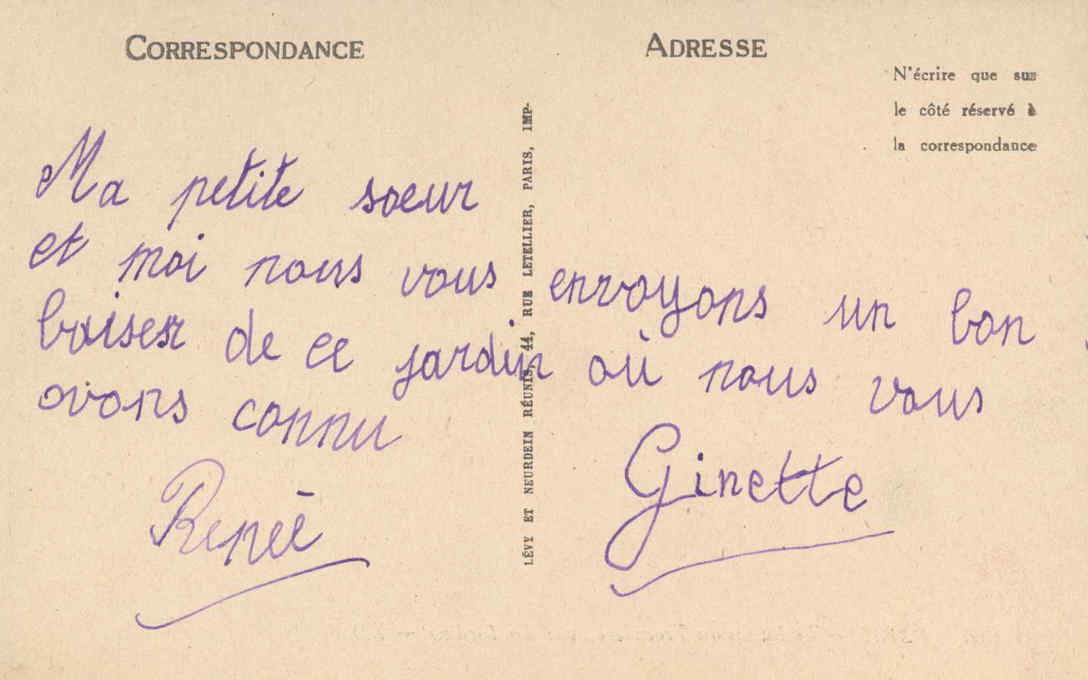 CORRESPONDANCE
ADRESSE
N'écrire que sur
le côté réservé à
la correspondance
LÉVY ET NEURDEIN RÉUNIS, 44, RUE LETELLIER, PARIS, IMP-
Ma petite soeur
et moi nous vous envoyons un bon
baiser de ce jardin où nous vous
avons connu
Renée
Ginette